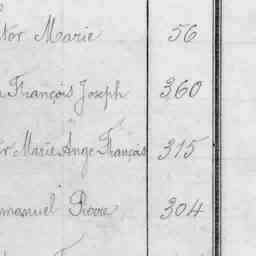 tor Marie 56
François Joseph 360
r Marie Ange François 315
manuel Pierre 304